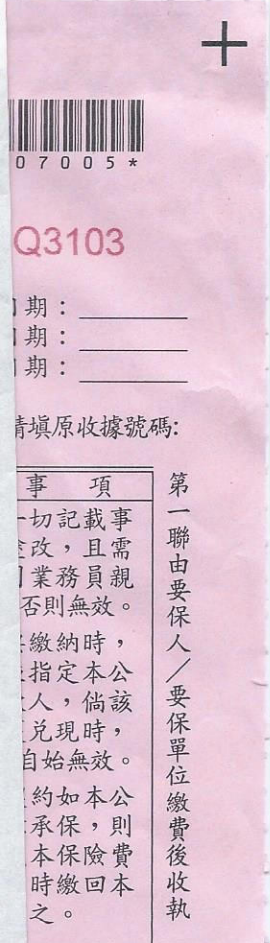 07005*
Q3103
期：
期：
期：
請填原收據號碼:
事 項
一切記載事
改，且需
業務員親
否則無效。
繳納時，
指定本公
人，倘該
兌現時，
自始無效。
約如本公
承保，則
本保險費
時繳回本
之。
第一聯由要保人／要保單位繳費後收執